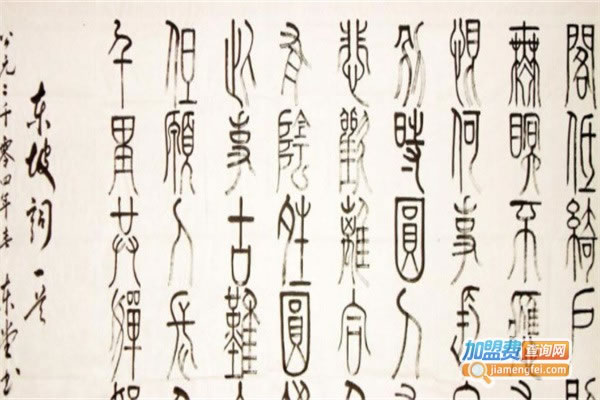 閣低綺戶
無眠不應有
恨何事長向
別時圓人有
悲歡離合月
有陰晴圓缺
此事古難全
但願人長久
千里共嬋娟
东坡词一首
公元二千零四年春 东堂书
加盟费查询网
jiamengfei.com